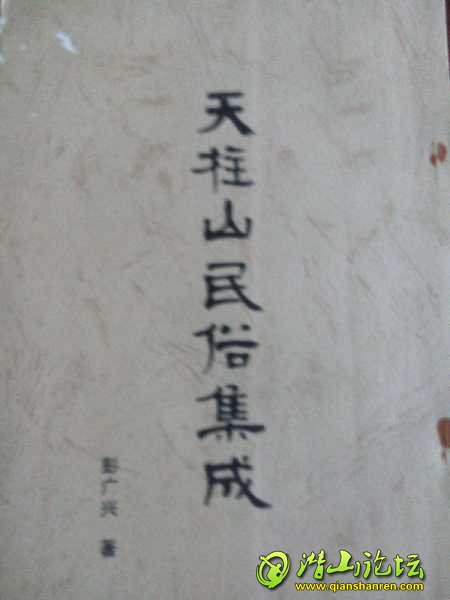 天柱山民俗集成
彭广兴 著
潜山论坛
www.qianshanren.com